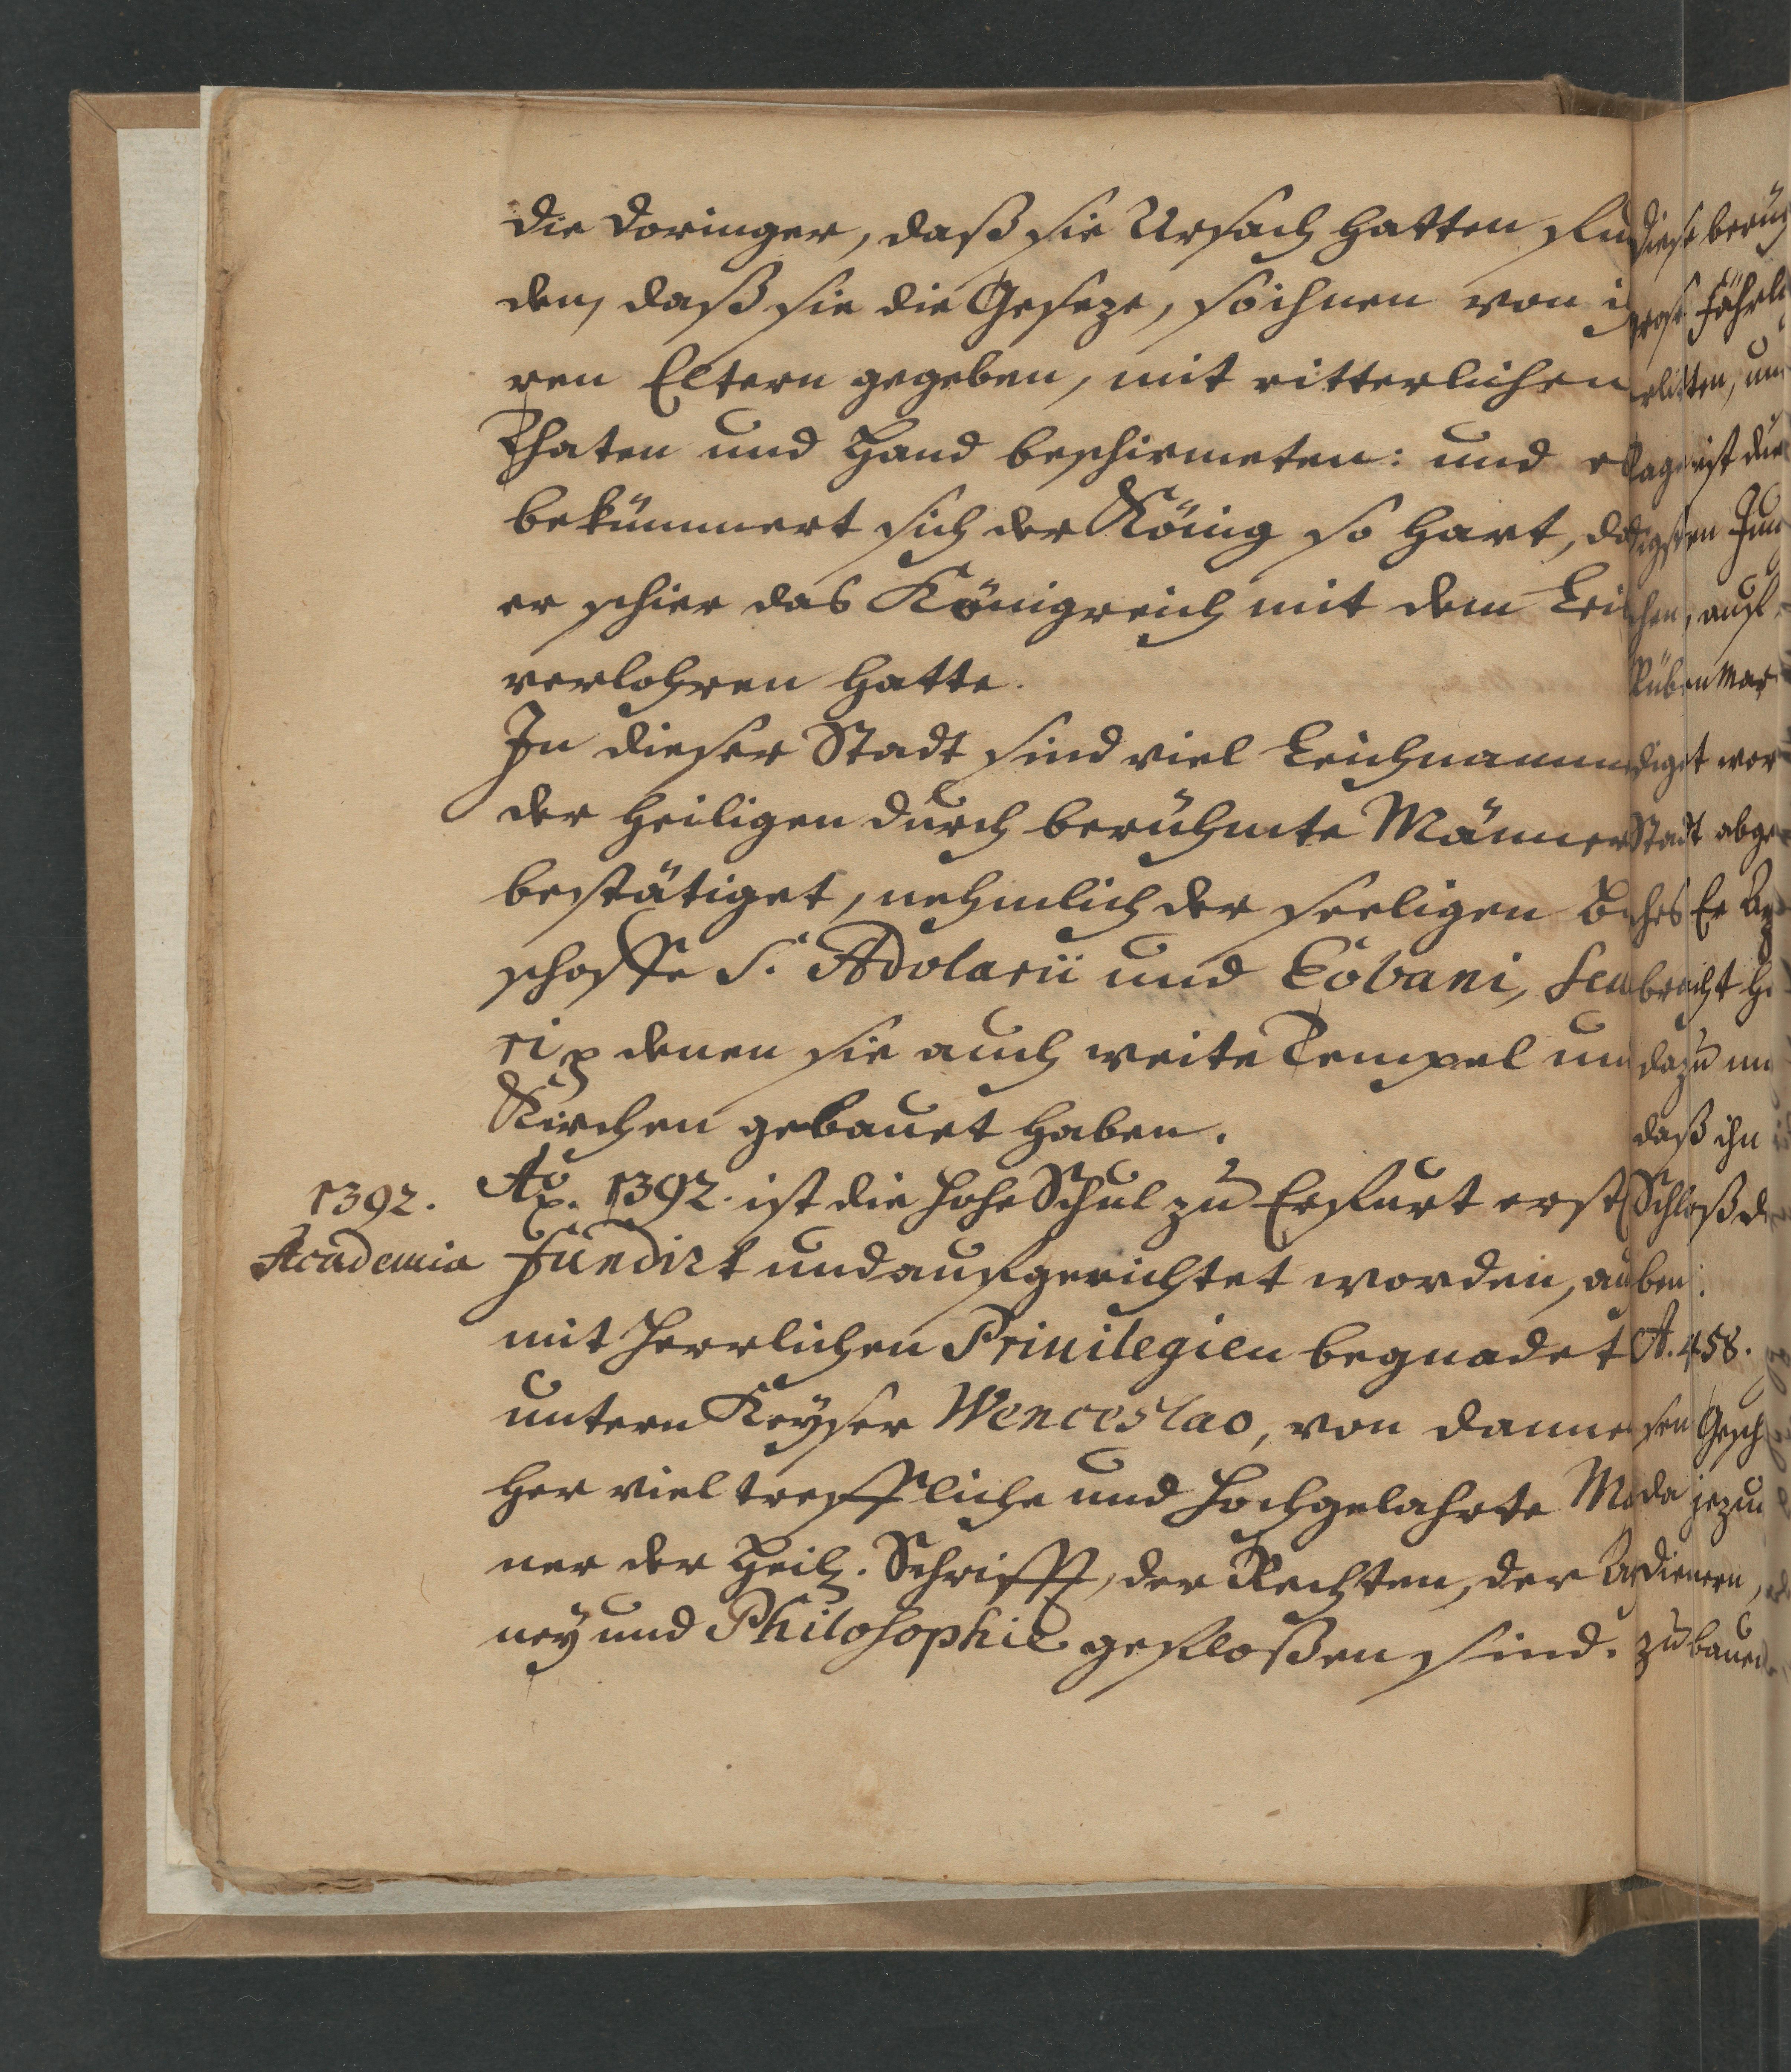 die Doringer, daß sie Ursach hatten fun
den, daß sie die Geseze, so ihnen von i
ren Eltern gegeben, mit ritterlichen
Thaten und Hand beschirmeten: und
bekümmert sich der König so hart, da
er schier das Königreich mit dem
verlohren hatte.
In dieser Stadt sind viel Leichnamm
der Heiligen durch berühmte Männer
bestätiget, nehmlich der seeligen
schoffe S. Adolarii und Eobani, Seve
ri, denen sie auch weite Tempel un
Kirchen gebauet haben.
1392. Ao. 1392. ist die Hohe Schul zu Erfurt erst
Academia fundirt und aufgerichtet worden, au
mit herrlichen Privilegien begnadet
untern Keyser Wenceslao, von danne
her viel treffliche und hochgelahrte
ner der Heil. Schrifft, der Rechten, der
ney und Philosophie gefloßen sind.
diese berüh
Fährli
litten, un
Tage ist die
Jun
chen, auf
Rüben Mar
diget wor
Stadt abge
ches Er
bracht
dazu un
daß ihn
Schloß d
ben:
A. 458.
sen Gesch
da jezu
dienern,
zu bauen